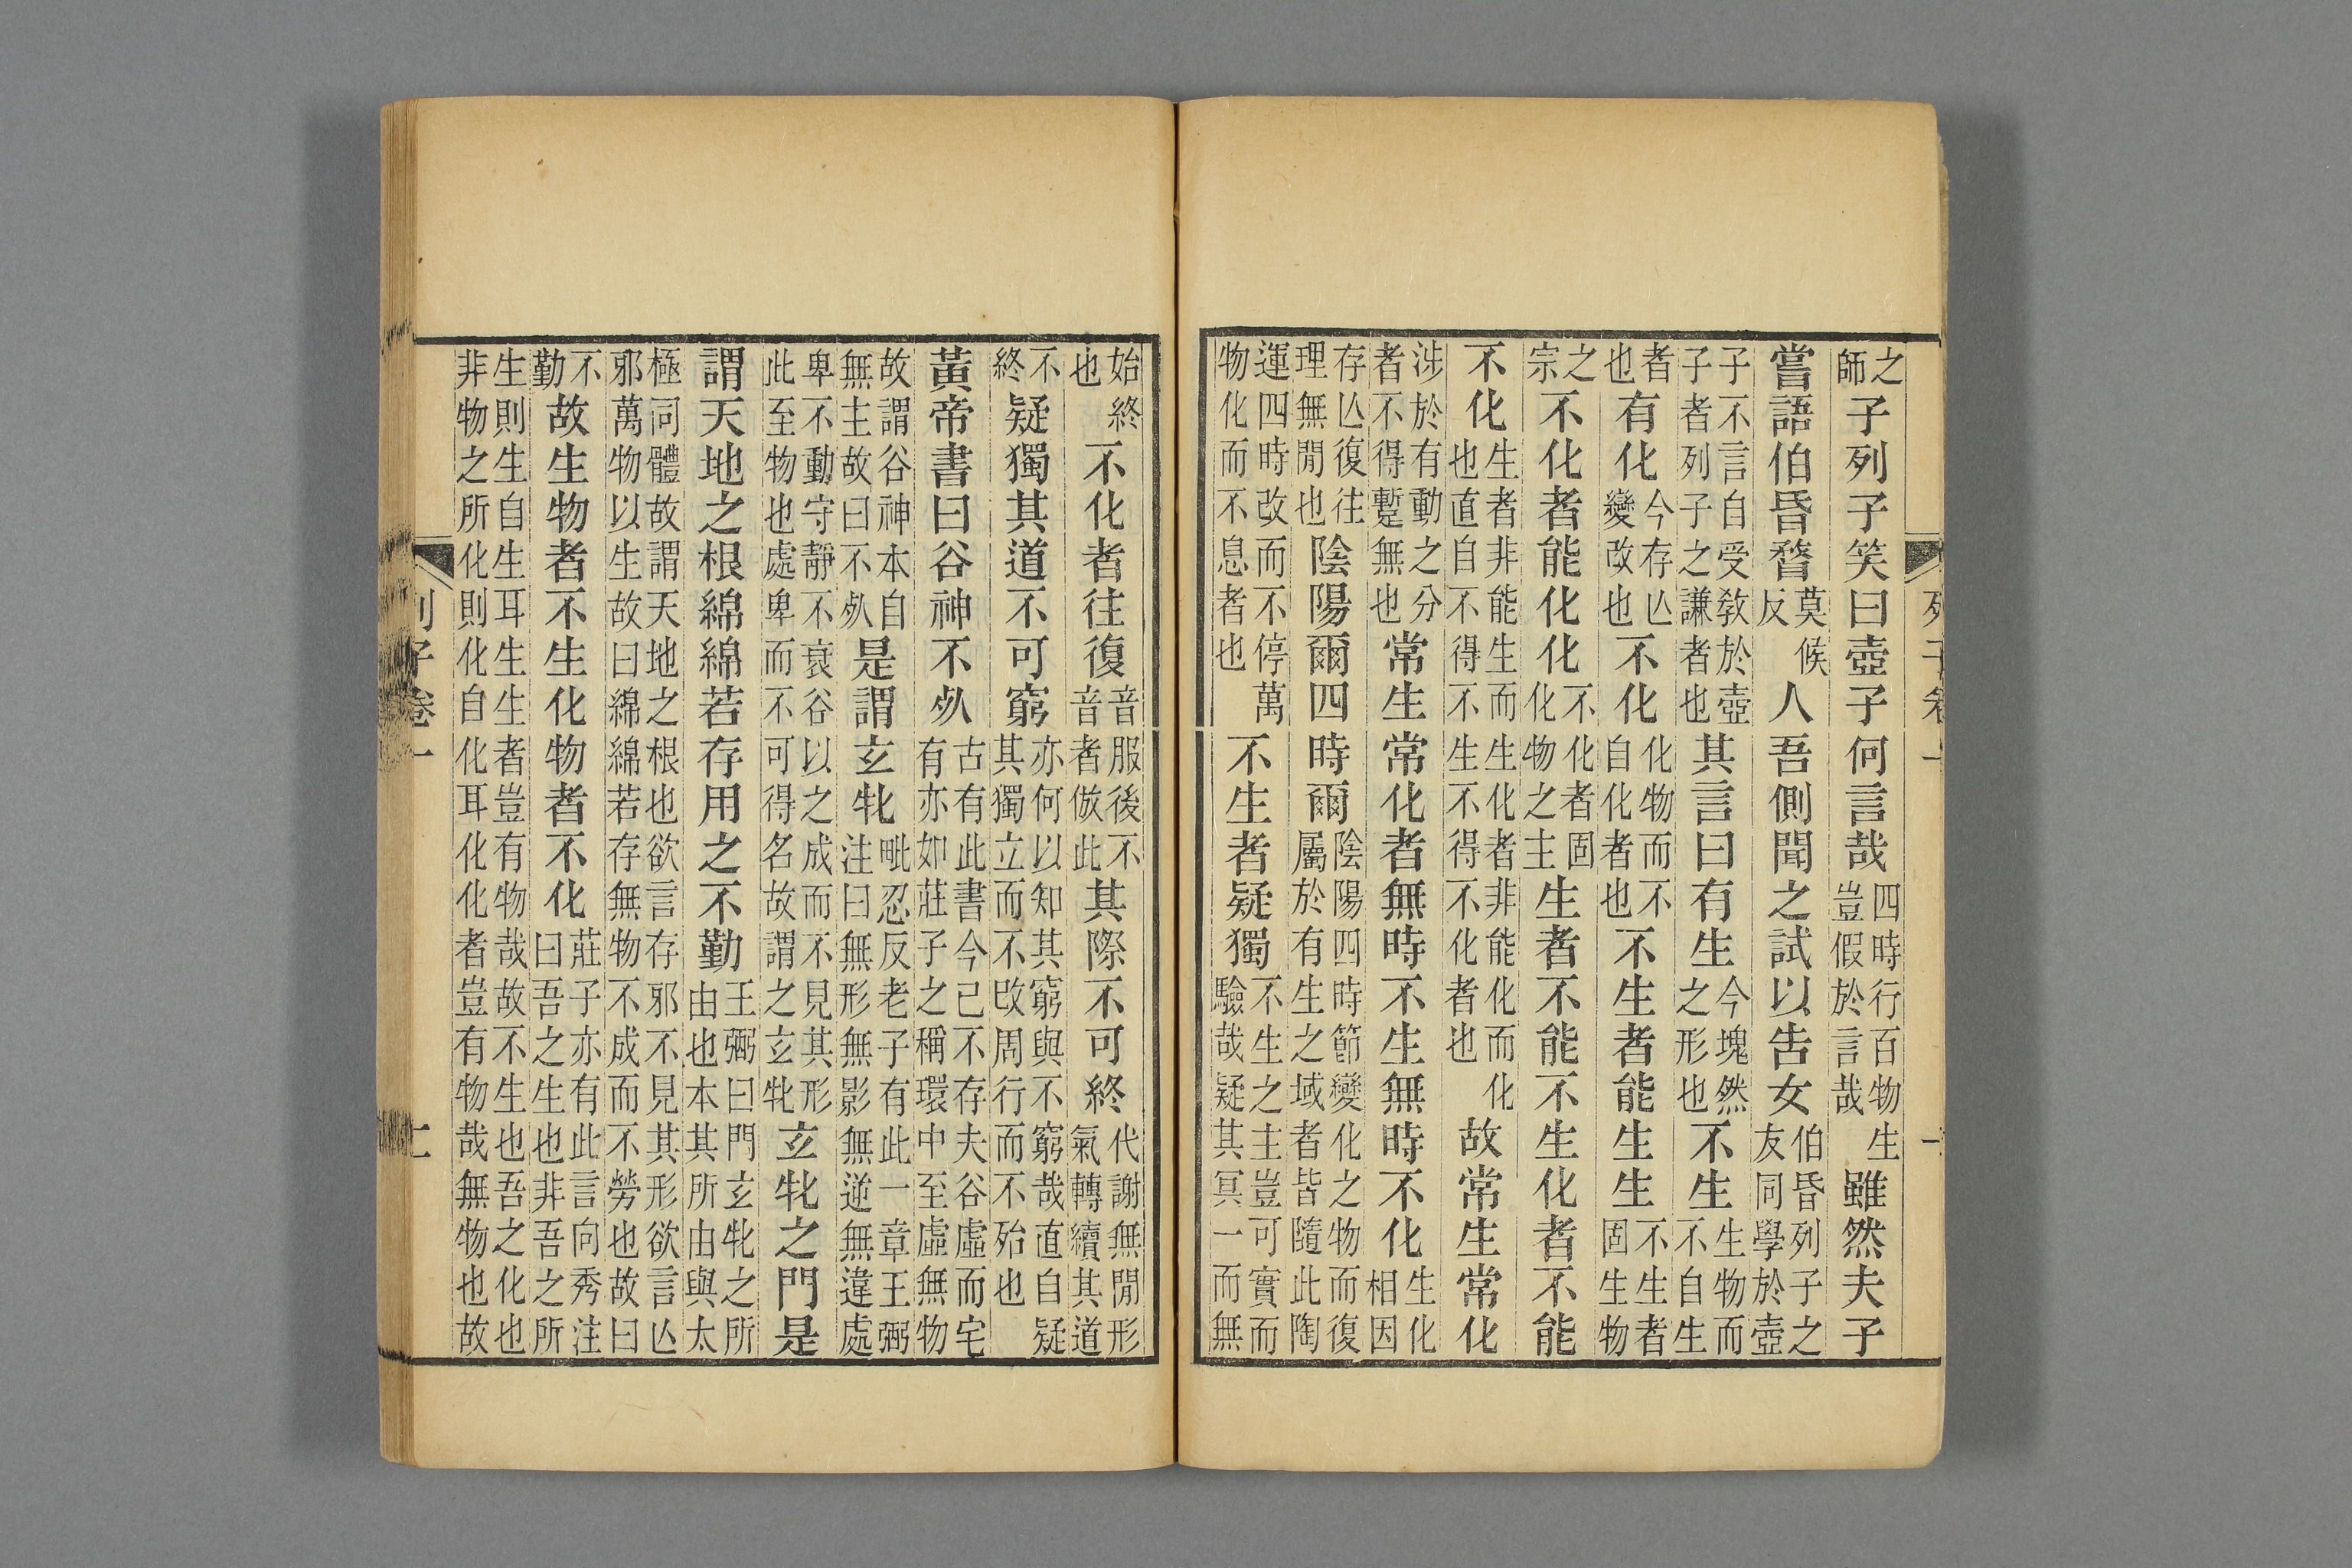 之師子列子笑曰壺子何言哉四時行百物生豈假於言哉雖然夫子
嘗語伯昏瞀莫候反人吾側聞之試以告女伯昏列子之友同學於壺
子不言自受敎於壺子者列子之謙者也其言曰有生今塊然之形也不生生物而不自生
者也有化今存亾變改也不化化物而不自化者也不生者能生生不生者固生物
之宗不化者能化化不化者固化物之主生者不能不生化者不能
不化生者非能生而生化者非能化而化也直自不得不生不得不化者也故常生常化
涉於有動之分者不得蹔無也常生常化者無時不生無時不化生化相因
存亾復往理無閒也陰陽爾四時爾陰陽四時節變化之物而復屬於有生之域者皆隨此陶
運四時改而不停萬物化而不息者也不生者疑獨不生之主豈可實而驗哉疑其冥一而無
始終也不化者往復音服後不音者倣此其際不可終代謝無閒形氣轉續其道
不終疑獨其道不可窮亦何以知其窮與不窮哉直自疑其獨立而不改周行而不殆也
黃帝書曰谷神不死古有此書今已不存夫谷虛而宅有亦如莊子之稱環中至虛無物
故謂谷神本自無主故曰不死是謂玄牝毗忍反老子有此一章王弼注曰無形無影無逆無違處
卑不動守靜不衰谷以之成而不見其形此至物也處卑而不可得名故謂之玄牝玄牝之門是
謂天地之根綿綿若存用之不勤王弼曰門玄牝之所由也本其所由與太
極同體故謂天地之根也欲言存邪不見其形欲言亾邪萬物以生故曰綿綿若存無物不成而不勞也故曰
不勤故生物者不生化物者不化莊子亦有此言向秀注曰吾之生也非吾之所
生則生自生耳生生者豈有物哉故不生也吾之化也非物之所化則化自化耳化化者豈有物哉無物也故
列子卷一